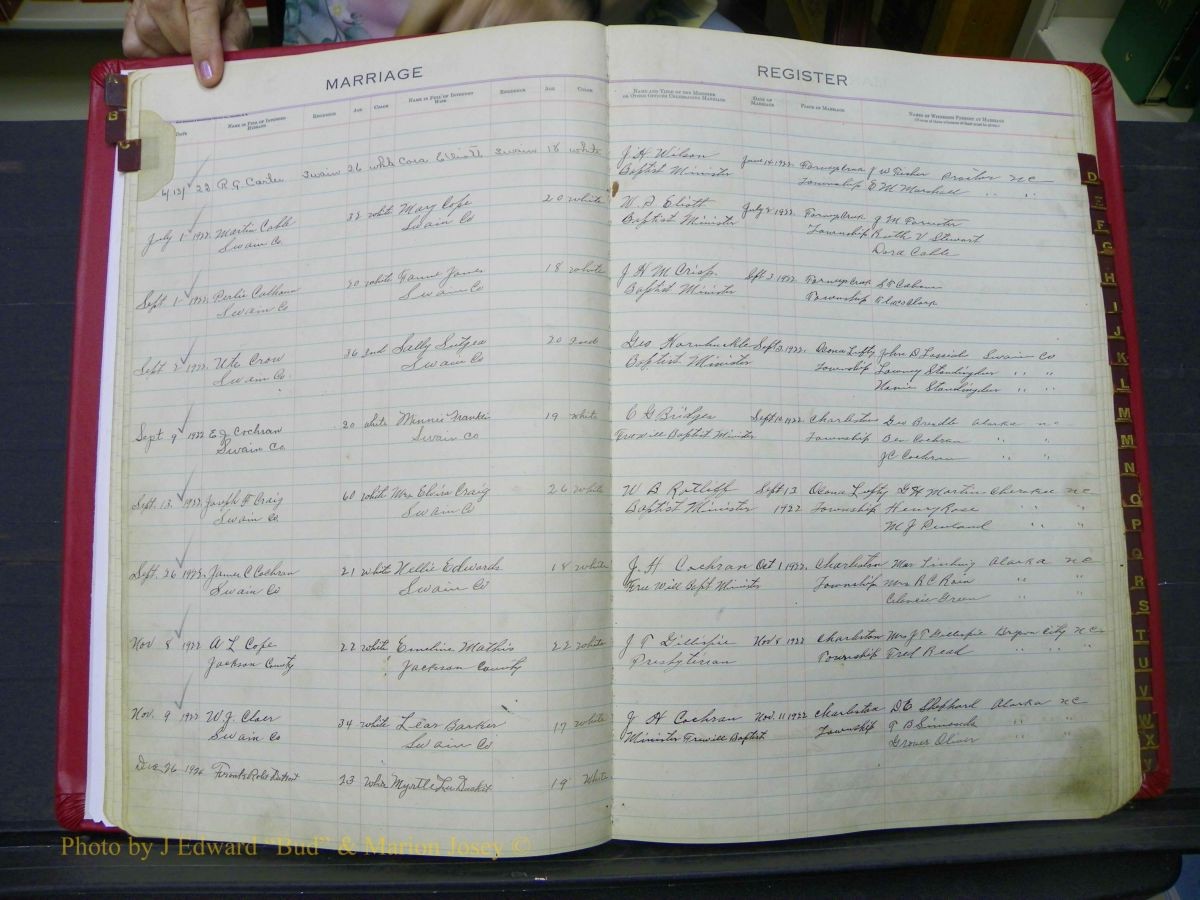 MARRIAGE REGISTER
Date Name in Full of Intended Husband Residence Age Color Name in Full of Intended Wife Residence Age Color Name and Title of the Minister or Other Officer Celebrating Marriage Date of Marriage Place of Marriage Names of Witnesses Present at Marriage
22 R. G. Carter Swain 26 white Cora Elliott Swain 18 white J H Wilson June 14 1922 Forneys Creek J W Fisher Proctor N C
Baptist Minister Township E M Marshall " "
July 1 1922 Martin Cable 32 white Mary Cope 20 white W. S. Eliott July 2 1922 Forneys Creek J M Forrester
Swain Co Swain Co Baptist Minister Township Ruth V Stewart
Dora Cable
Sept 1 1922 Perlie Calhoun 20 white Fannie Jones 18 white J H M Crisp Sept 3 1922 Forneys Creek
Swain Co Swain Co Baptist Minister Township
Sept 2 1922 Ute Crow 36 Ind Sally 20 Ind Geo Hornbuckle Sept 3, 1922 Ocona Lufty John D Lossiah Swain Co
Swain Co Swain Co Baptist Minister Township Lowney Standingdeer " "
Nannie Standingdeer " "
Sept 9 1922 E J Cochran 20 white Minnie Franklin 19 white C G Bridges Sept 10 1922 Charleston Geo Alarka N C
Swain Co Swain Co Freewill Baptist Minister Township Ben Cochran " "
J C Cochran " "
Sept. 13, 1922 Joseph F Craig 60 white Mrs Elvira Craig 26 white W B Ratliff Sept 13 Ocona Lufty G H Martin Cherokee N C
Swain Co Swain Co Baptist Minister 1922 Township Henry Rose " "
M J Penland " "
Sept. 26 1922. James C Cochran 21 white Nellie Edwards 18 white J. H Cochran Oct 1 1922. Charleston Mrs Alarka N C
Swain Co Swain Co Free Will Bapt Minister Township Mrs R C " "
Green " "
Nov 8 1922 A L Cope 22 white Emeline Mathis 22 white J T Gillespie Nov 8 1922 Charleston Mrs J T Gillespie Bryson City N C
Jackson County Jackson County Presbyterian Township Fred Read " " "
Nov. 9 1922 W. J. Cloer 34 white Barker 17 white J H Cochran Nov. 11 1922 Charleston D E Shephard Alarka N C
Swain Co Swain Co Minister Freewill Baptist Township T B Simonds " "
Grover Oliver " "
Dec 26 23 white Myrtle 19 white
B
C
D
E
F
G
H
I
J
K
L
M
M
N
O
P
Q
R
S
T
U
V
W
X
Y
Photo by J Edward "Bud" & Marion Josey ©